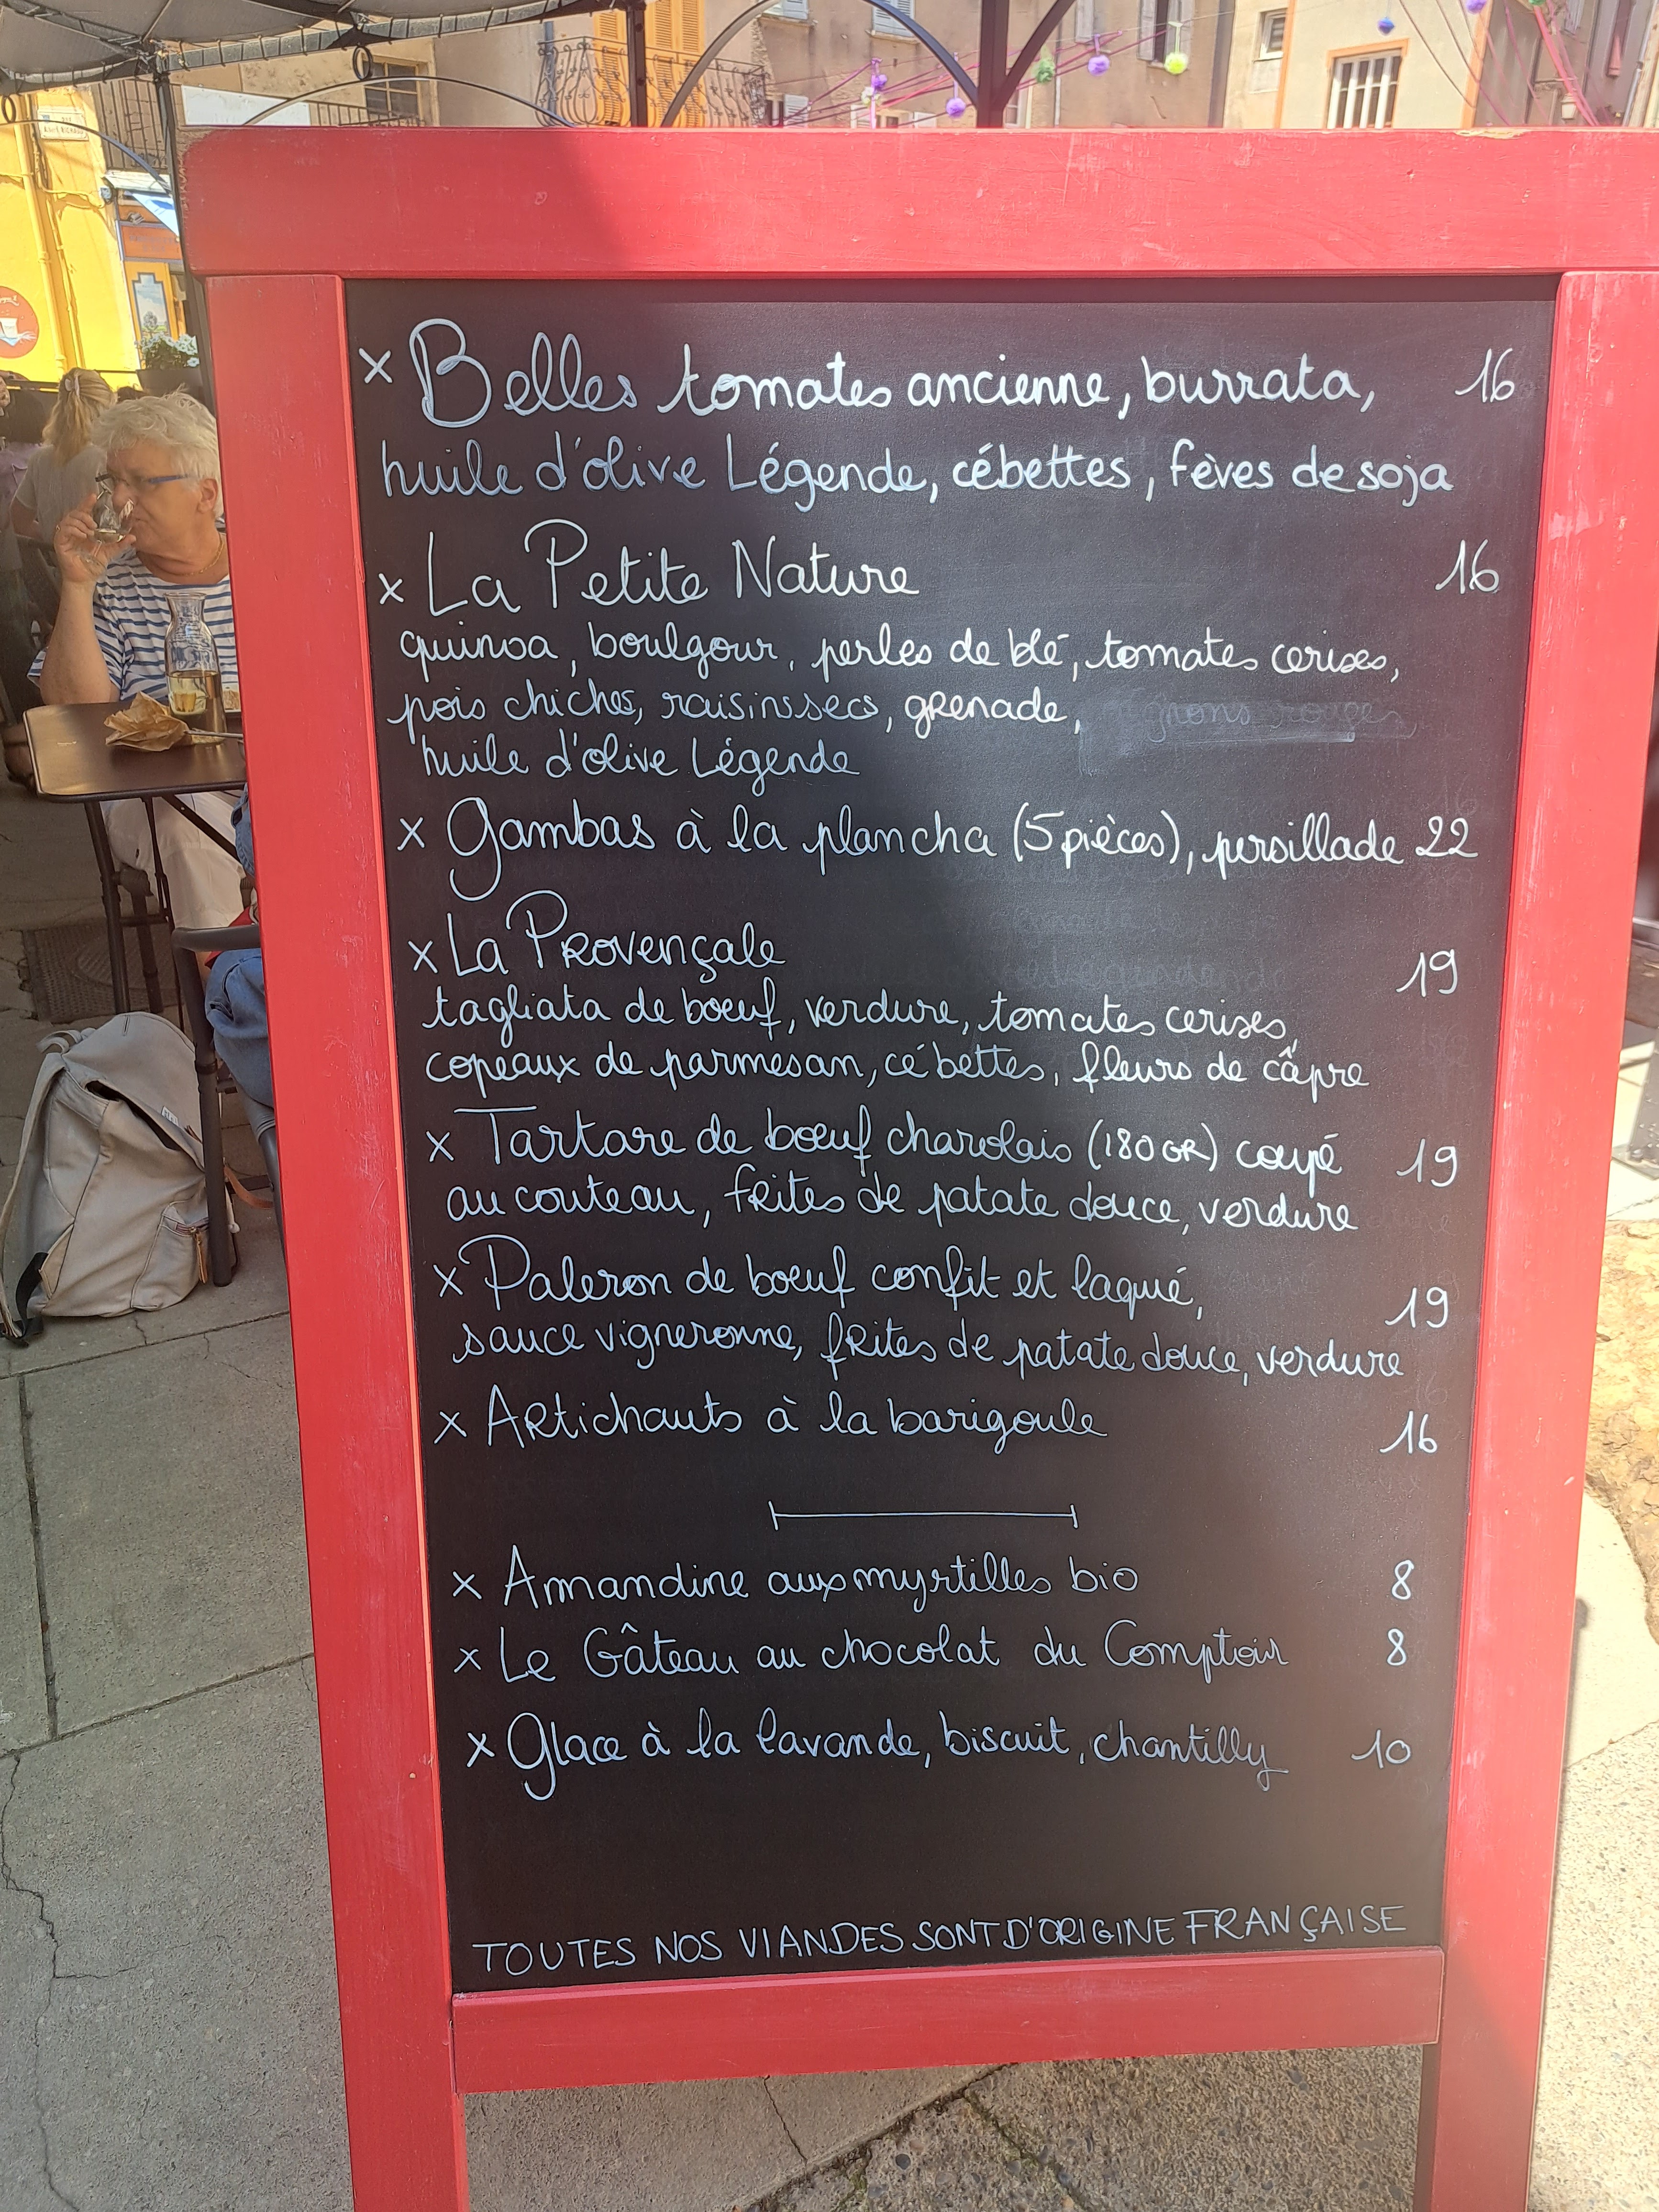 x Belles tomates ancienne, burrata, 16
huile d'olive Légende, cébettes, fèves de soja
x La Petite Nature 16
quinoa, boulgour, perles de blé, tomates cerises,
pois chiches, raisins secs, grenade,
huile d'olive Légende
x Gambas à la plancha (5 pièces), persillade 22
x La Provençale 19
tagliata de boeuf, verdure, tomates cerises,
copeaux de parmesan, cébettes, fleurs de câpre
x Tartare de boeuf charolais (180GR) coupé 19
au couteau, frites de patate douce, verdure
x Paleron de boeuf confit et laqué, 19
sauce vigneronne, frites de patate douce, verdure
x Artichauts à la barigoule 16
x Amandine aux myrtilles bio 8
x Le Gâteau au chocolat du Comptoir 8
x Glace à la lavande, biscuit, chantilly 10
TOUTES NOS VIANDES SONT D'ORIGINE FRANÇAISE